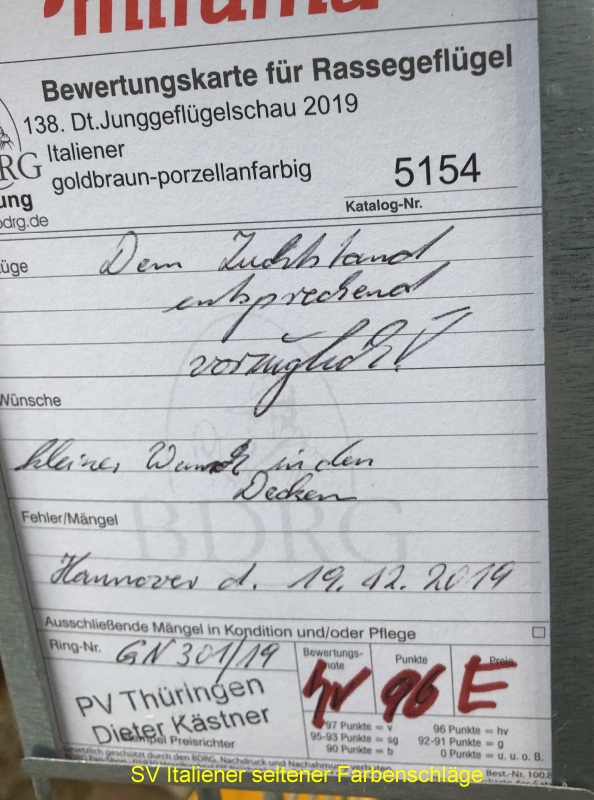 Bewertungskarte für Rassegeflügel
138. Dt.Junggeflügelschau 2019
Italiener
goldbraun-porzellanfarbig
5154
Katalog-Nr.
RG
ung
drg.de
üge
Dem Zuchtstand
entsprechend
vorzüglich!
Wünsche
kleiner Wunsch in den
Decken
BDRG
Fehler/Mängel
Hannover d. 19.12.2019
Ausschließende Mängel in Kondition und/oder Pflege
Ring-Nr. GN 301/19
Bewertungs-
note
Punkte
Preis
hv 96 E
PV Thüringen
Dieter Kästner
Stempel Preisrichter
97 Punkte = v
96 Punkte = hv
95-93 Punkte = sg
92-91 Punkte = g
90 Punkte = b
0 Punkte = u. u. o. B.
Gesetzlich geschützt durch den BDRG, Nachdruck und Nachahmung verboten
Best.-Nr. 100.
SV Italiener seltener Farbenschläge